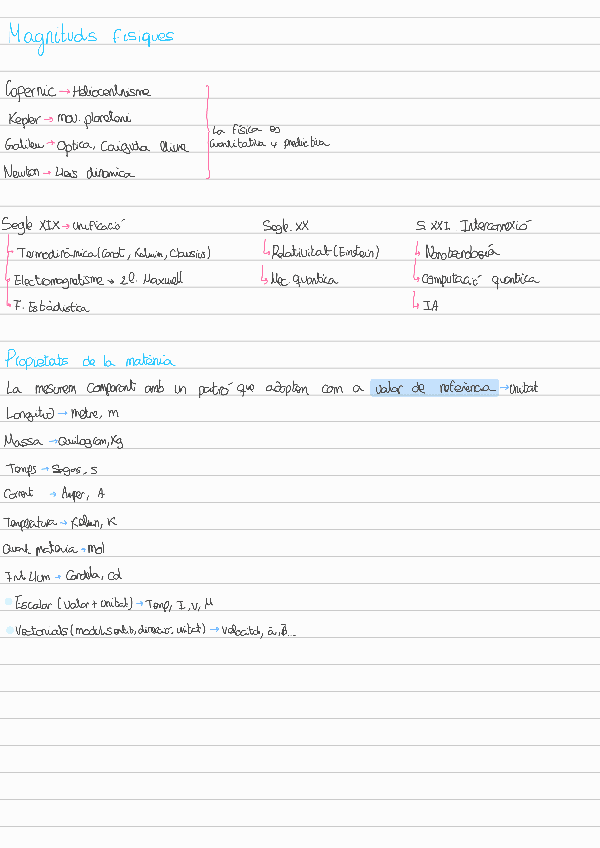 Magnituds físiques
Copernic → Heliocentrisme
Kepler → mov. planetari
Galileu → Optica, Caiguda lliure
La física es
quantitativa i predictiva
Newton → Lleis dinamica
Segle XIX → unificació
Segle XX
S. XXI Interconexió
Termodinàmica (Carnot, Kelvin, Clausius)
Relativitat (Einstein)
Nanotecnología
Electromagnetisme → Maxwell
Mec. quantica
Computació quantica
F. Estadistica
IA
Propietats de la matèria
La mesurem comparant amb un patró que adoptem com a valor de referència → unitat
Longitud → metre, m
Massa → Quilogram, Kg
Temps → Segon, s
Corrent → Amper, A
Temperatura → Kelvin, K
Quant materia → mol
Int. Llum → Candela, cd
Escalar (valor + unitat) → Temp, I, V, M
Vectorials (modul, sentit, direcció, unitat) → Velocitat, a, B...